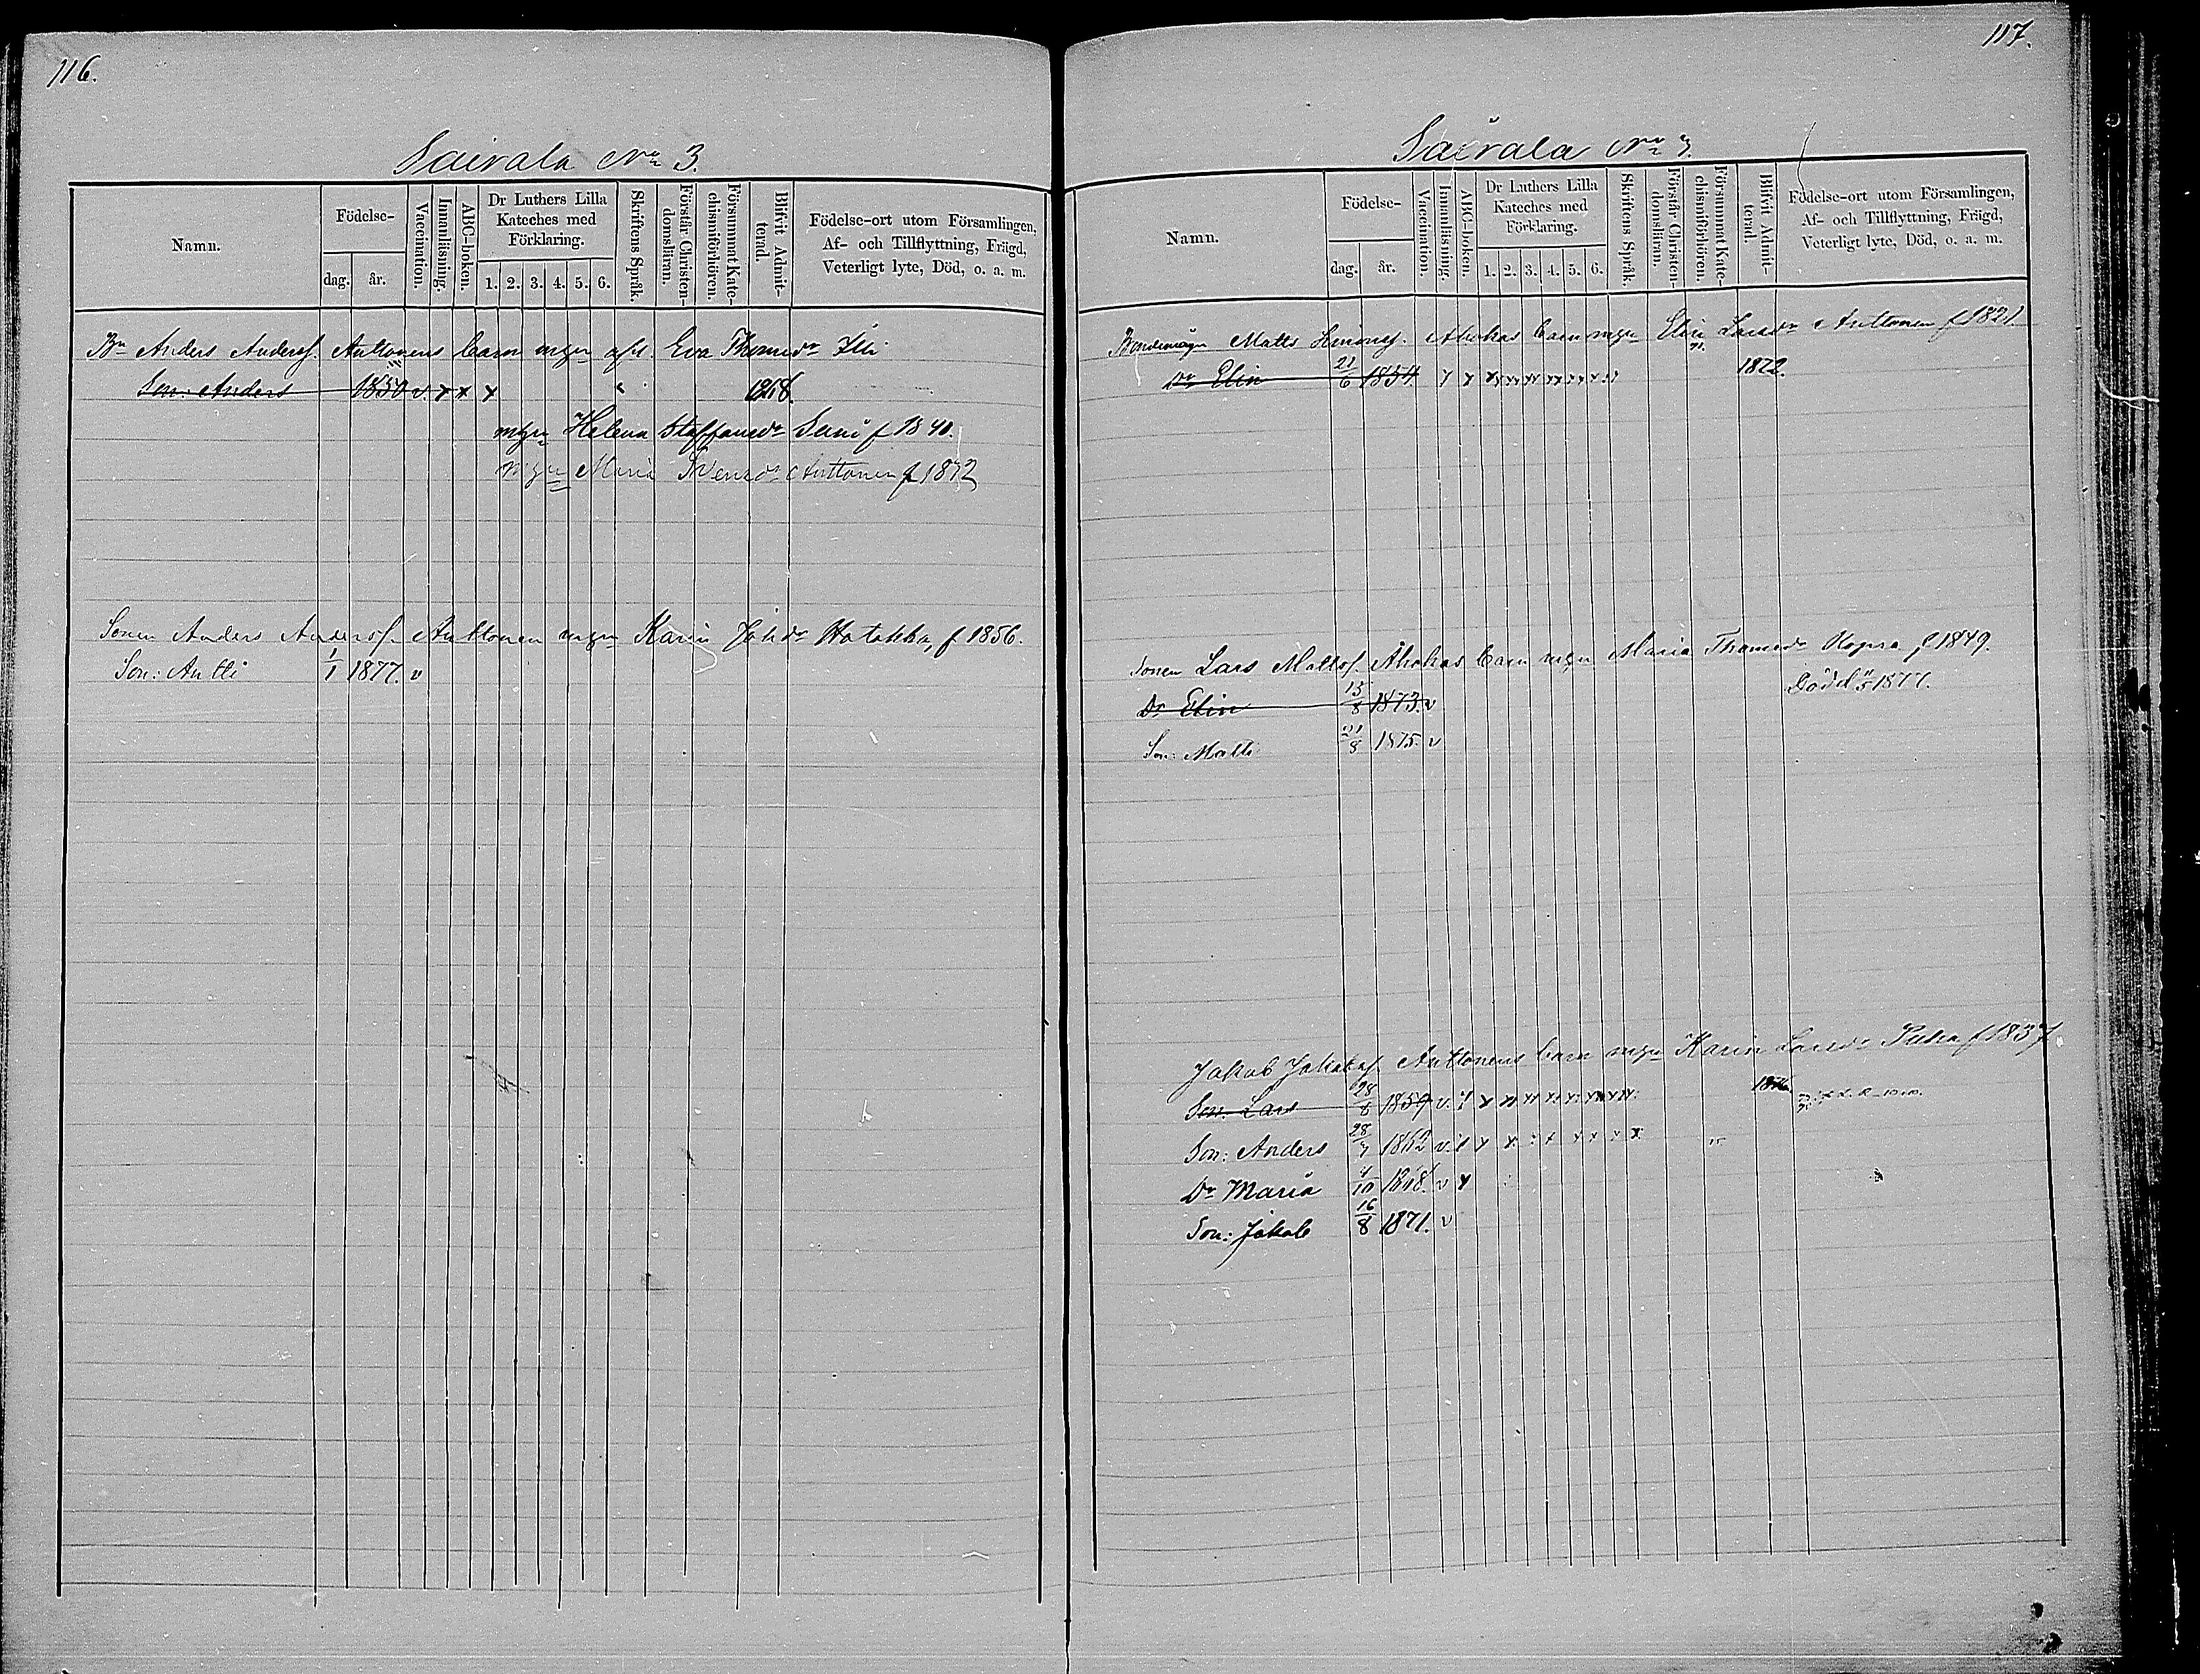 116.
Sairala No 3.
Namn.
Födelse-
dag. år.
Vaccination.
Innanläsning.
ABC-boken.
Dr Luthers Lilla Kateches med Förklaring.
1. 2. 3. 4. 5. 6.
Skriftens Språk.
Förstår Christendomsläran.
Försummat Katechismiförhören.
Blifvit Admitterad.
Födelse-ort utom Församlingen,
Af- och Tillflyttning, Frägd,
Veterligt lyte, Död, o. a. m.
Bn Anders Andersf. Anttonens barn mgn afl. Eva Thomædr Illi
Son: Anders 1850 v. x x x 1868.
mgn Helena Staffansdr Suni f 1840.
mgn Maria Svensdr Anttonen f 1872
Sonen Anders Andersf. Anttonen mgn Karin Johdr Hatakka, f 1856.
Son: Antti 1/1 1877. v
117.
Sairala No 3.
Namn.
Födelse-
dag. år.
Vaccination.
Innanläsning.
ABC-boken.
Dr Luthers Lilla Kateches med Förklaring.
1. 2. 3. 4. 5. 6.
Skriftens Språk.
Förstår Christendomsläran.
Försummat Katechismiförhören.
Blifvit Admitterad.
Födelse-ort utom Församlingen,
Af- och Tillflyttning, Frägd,
Veterligt lyte, Död, o. a. m.
Bondemågen Matts Henricsf. Ahokas barn mgn Elin Larsdr Anttonen f 1821
Dr Elin 21/6 1854 1872.
Sonen Lars Mattsf. Ahokas barn mgn Maria Thomædr f 1849.
Dr Elin 15/8 1873. v Död 1877.
Son: Matti 21/8 1875. v
Jakob Jakobsf. Anttonens barn mgn Karin Larsdr Puha f 1837
Son: Lars 28/8 1859 v. 1876
Son: Anders 28/7 1862 v.
Dr Maria 4/10 1868. v x
Son: Jakob 16/8 1871. v